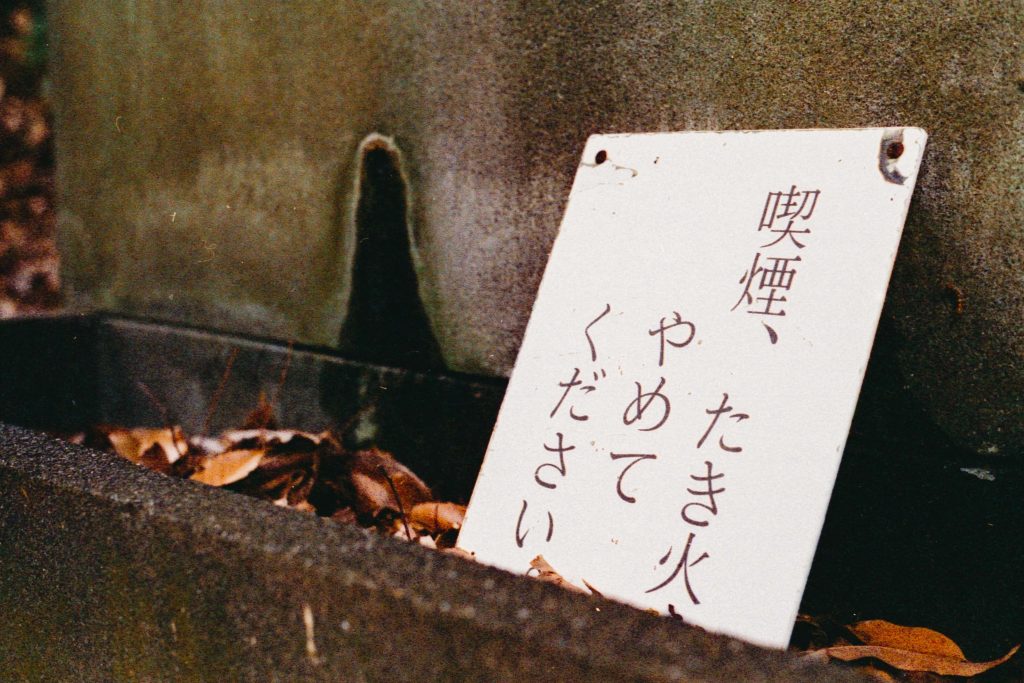 喫煙、たき火
やめて
ください